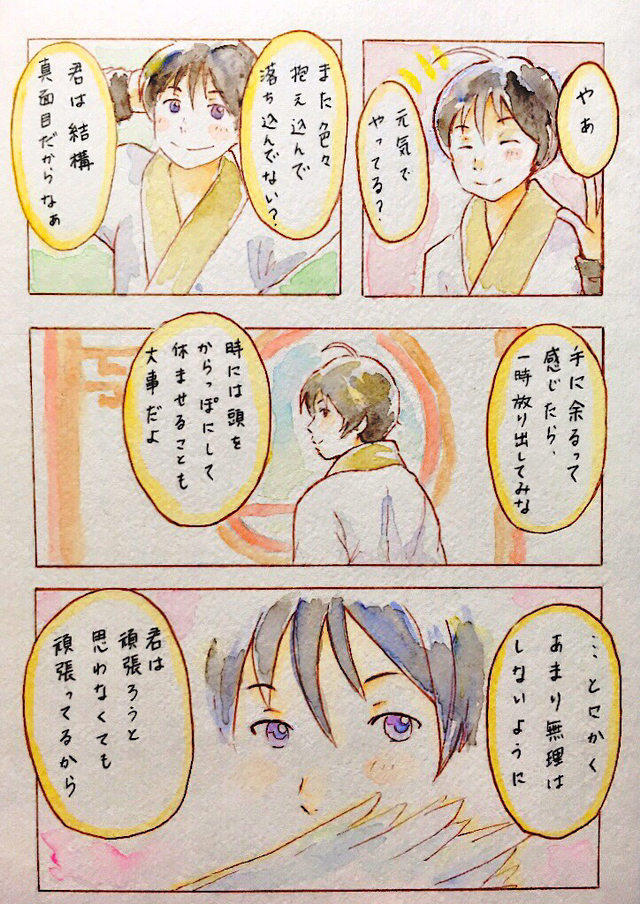 やあ
元気で
やってる？
また色々
抱え込んで
落ち込んでない？
君は結構
真面目だからなぁ
手に余るって
感じたら、
一時放り出してみな
時には頭を
からっぽにして
休ませることも
大事だよ
…とにかく
あまり無理は
しないように
君は
頑張ろうと
思わなくても
頑張ってるから